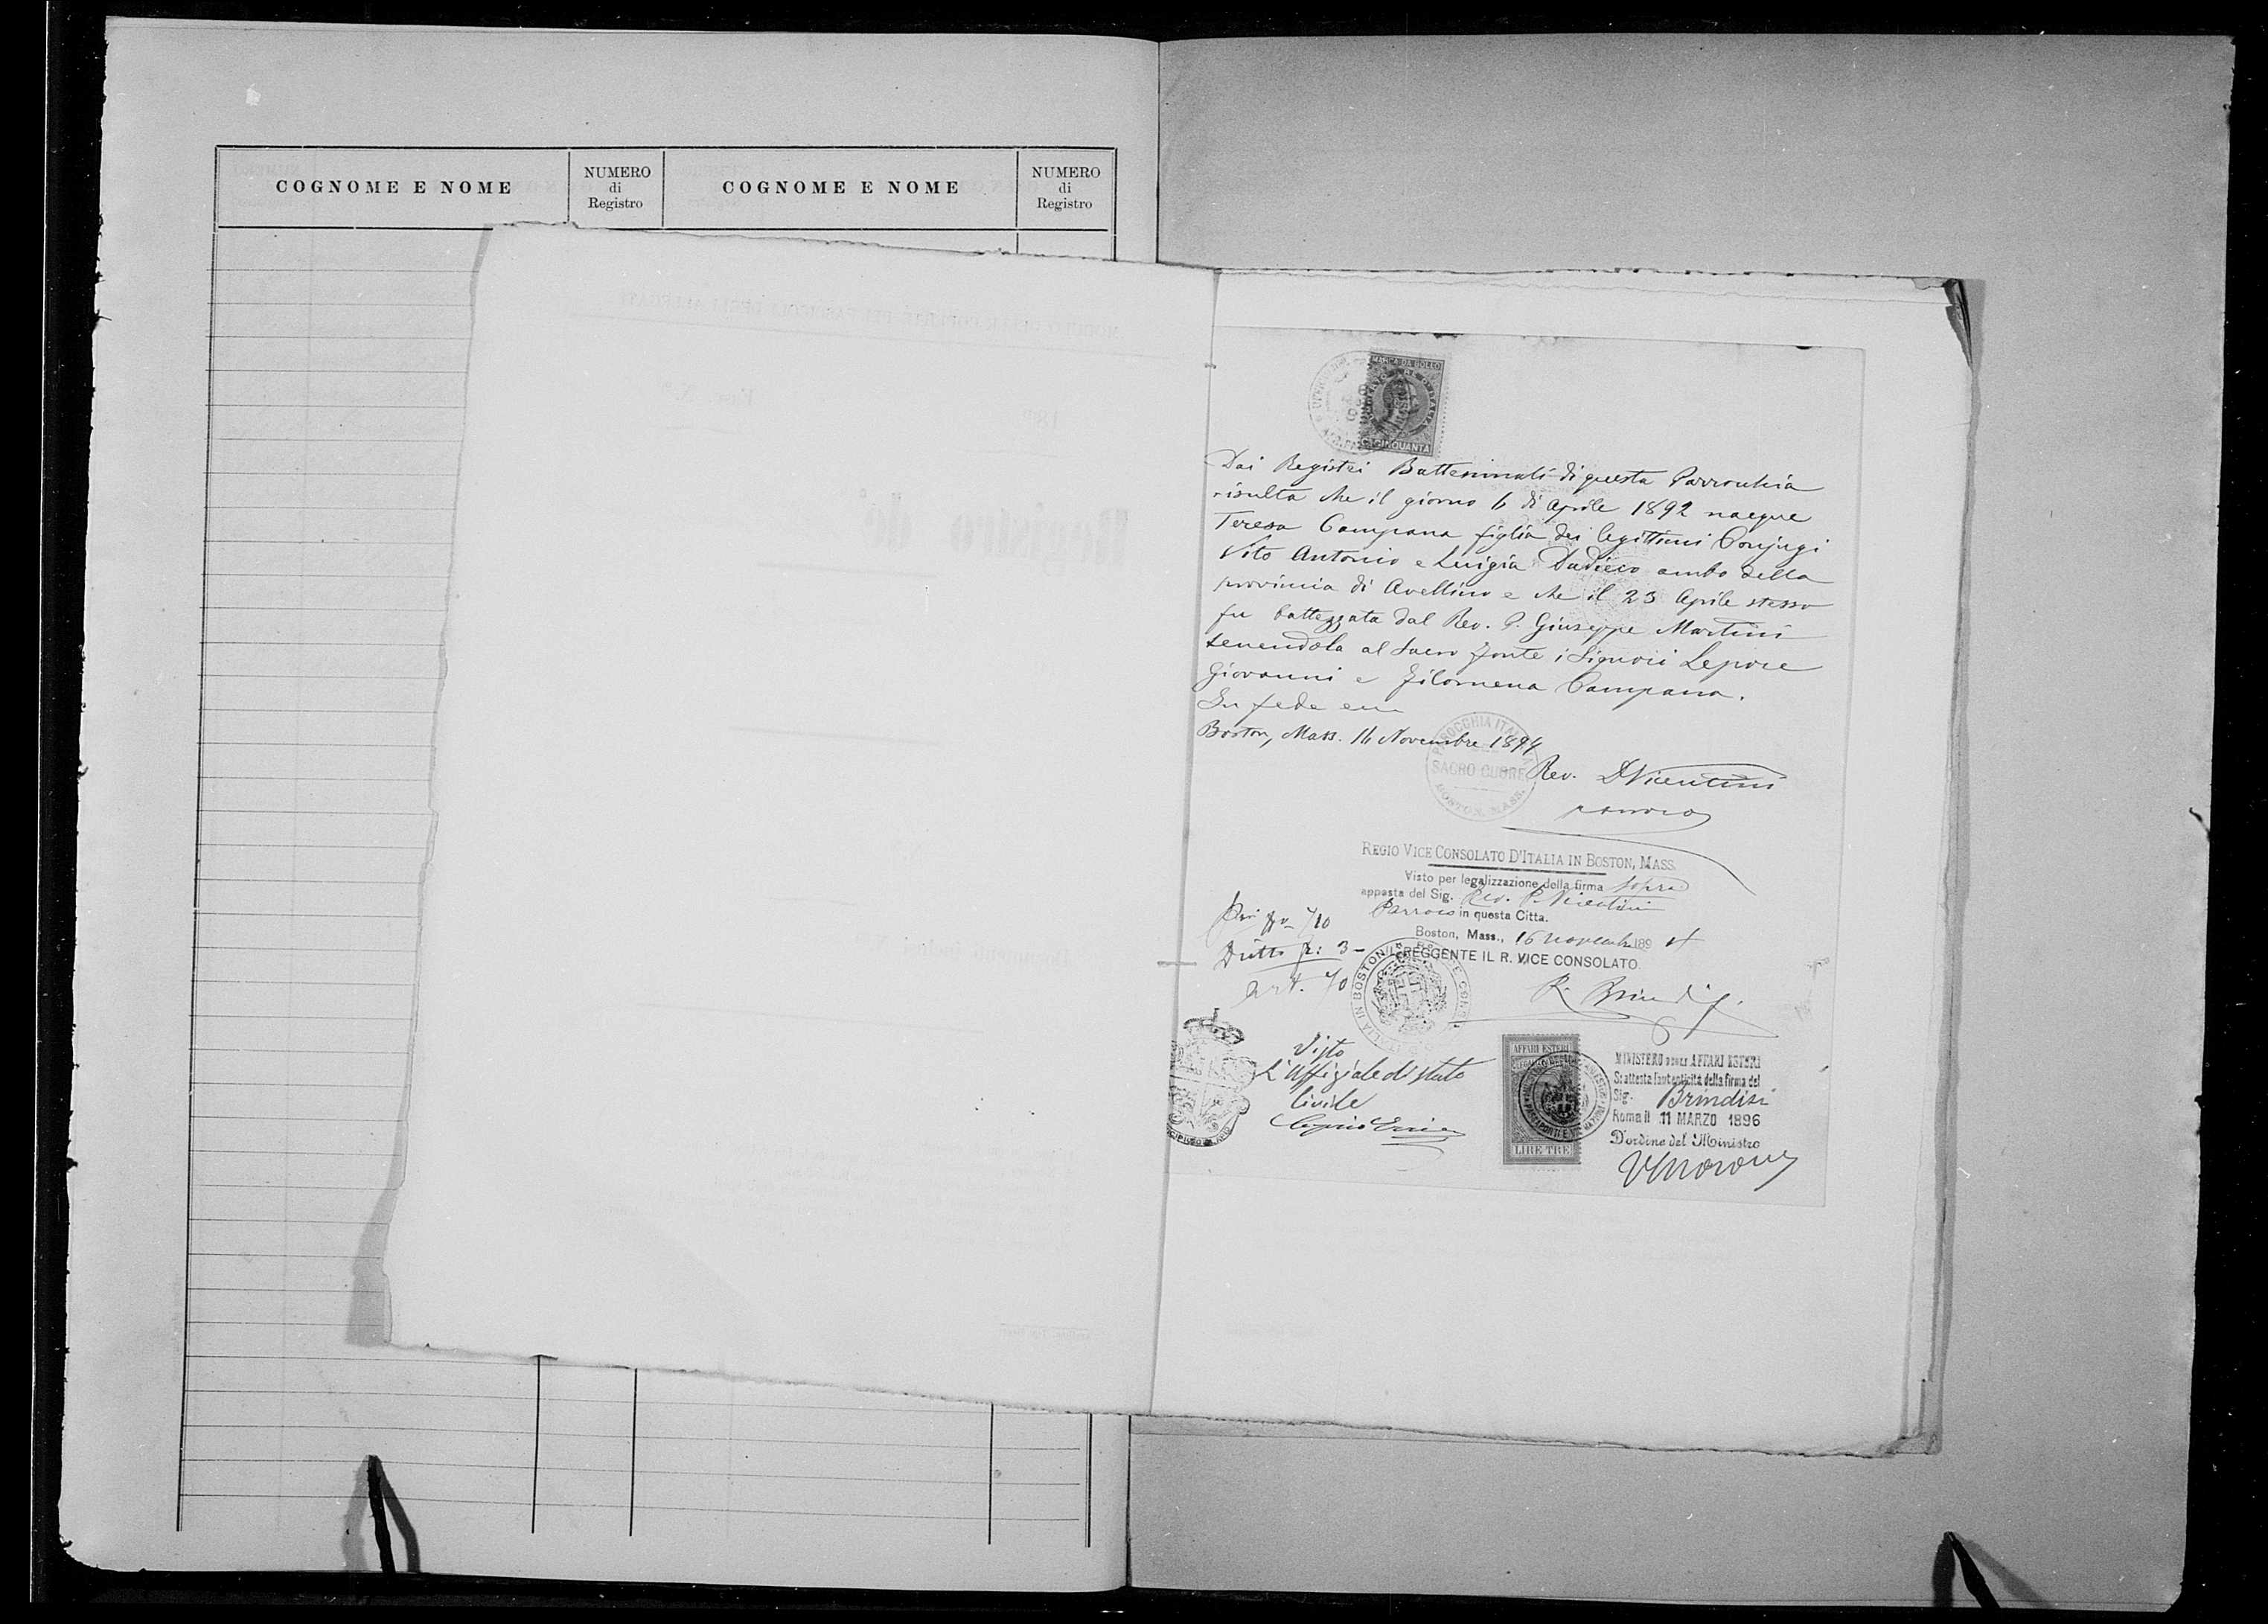 COGNOME E NOME
NUMERO
di
Registro
COGNOME E NOME
NUMERO
di
Registro
MARCA DA BOLLO
CINQUANTA
Dai Registri Battesimali di questa Parrochia
risulta che il giorno 6 di Aprile 1892 nacque
Teresa Campana figlia dei legittimi Conjugi
Vito Antonio e Luigia Dudieco ambo della
provincia di Avellino e che il 23 Aprile stesso
fu battezzata dal Rev. P. Giuseppe Martini
tenendola al Sacro fonte i Signori Lepore
Giovanni e Filomena Campana.
In fede
Boston, Mass. 14 Novembre 1894
SACRO CUORE
BOSTON, MASS.
Rev. Vicentini
parroco
REGIO VICE CONSOLATO D'ITALIA IN BOSTON, MASS.
Visto per legalizzazione della firma sopra
apposta del Sig. Rev. P. Vicentini
Parroco in questa Citta.
Boston, Mass., 16 novembre 1894
IL REGGENTE IL R. VICE CONSOLATO
710
Dritto 3 -
art. 70
R. Brindisi
Visto
L'Uffiziale di stato
Civile
AFFARI ESTERI
LIRE TRE
MINISTERO DEGLI AFFARI ESTERI
Si attesta l'autenticità della firma del
Sig. Brindisi
Roma il 11 MARZO 1896
D'ordine del Ministro